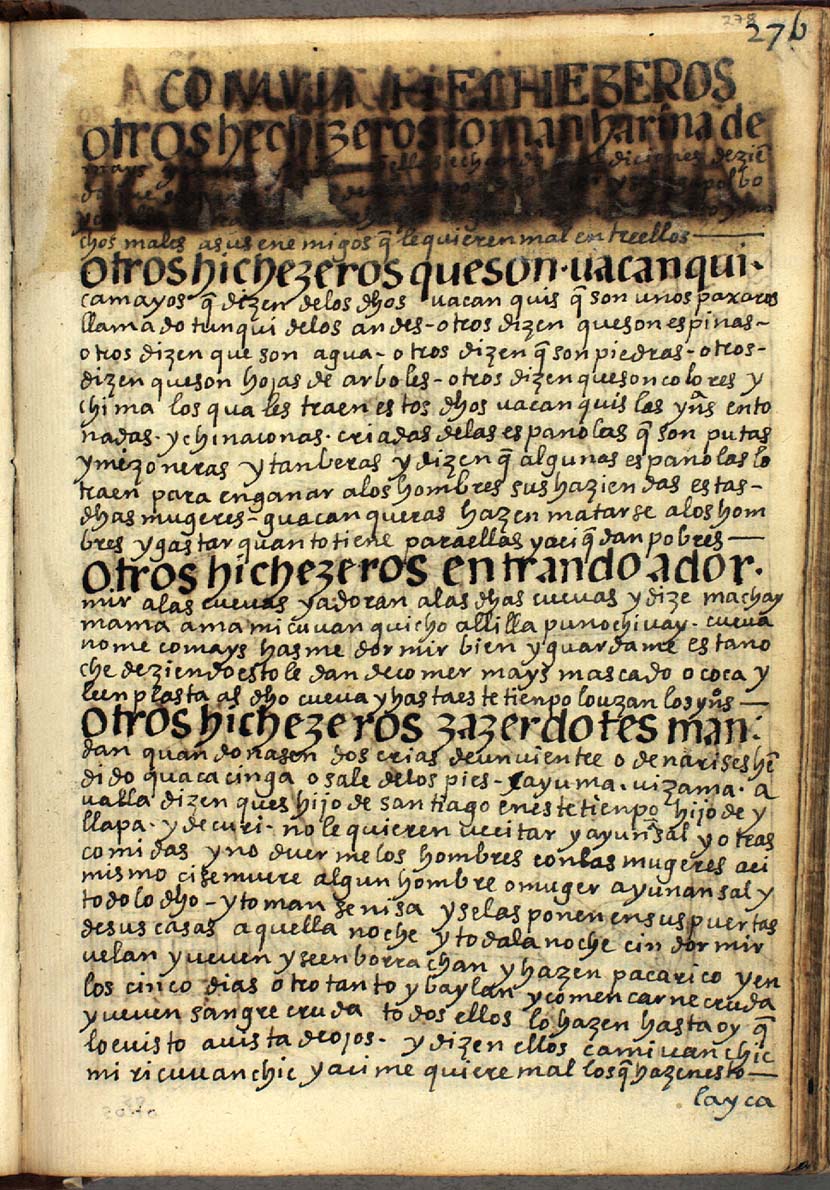 278
276
COMVN HECHEZEROS
otros hechizeros toman harina de
mays y
chos males a sus ene migos q̃ le quieren mal entre ellos
otros hichezeros que son · uacanqui ·
camayos q̃ dizen de los dhos uacan quis q̃ son unos paxaros
llamado tunqui de los andes - otros dizen que son espinas -
otros dizen que son agua - otros dizen q̃ son piedras - otros -
dizen que son hojas de arboles - otros dizen que son colores y
chima los quales traen estos dhos uacanquis las ynˢ ento
nadas · y chinaconas · criadas de las españolas q̃ son putas
y mezoneras y tanberas y dizen q̃ algunas españolas lo
traen para enganar a los hombres sus haziendas estas -
dhas mugeres - guacanqueras hazen matarse a los hom
bres y gastar quanto tiene para ellas y aci q̃dan pobres
otros hichezeros entrando a dor ·
mir a las cuevas y adoran a las dhas cuevas y dize machay
mama ama micuuanquicho allilla punochiuay · cueua
no me comays hasme dormir bien y guardame esta no
che deziendo esto le dan de comer mays mascado o coca y
le enplasta as dho cueua y hasta este tienpo lo uzan los ynˢ
otros hichezeros zazerdotes man :
dan quando nasen dos crias de un uientre o de narises hẽ
dido quaca cinga o sale de los pies - cayuma · uizama · a
ualla dizen ques hijo de santiago en este tienpo hijo de y
llapa · y de curi · no le quieren uecitar y ayunã sal y otras
comidas y no duerme los hombres con las mugeres aci
mismo ci se muere algun hombre o muger ayunan sal y
todo lo dho - y toman senisa y se las ponen en sus puertas
de sus casas aquella noche y toda la noche cin dormir
uelan y ueuen y se enborrachan y hazen pacarico y en
los cinco dias otro tanto y baylan y comen carne cruda
y ueuen sangre cruda todos ellos lo hazen hasta oy q̃
lo e uisto a uista de ojos - y dizen ellos camiuanchic
miricuuanchic y aci me quiere mal los q̃ hazen esto
layca